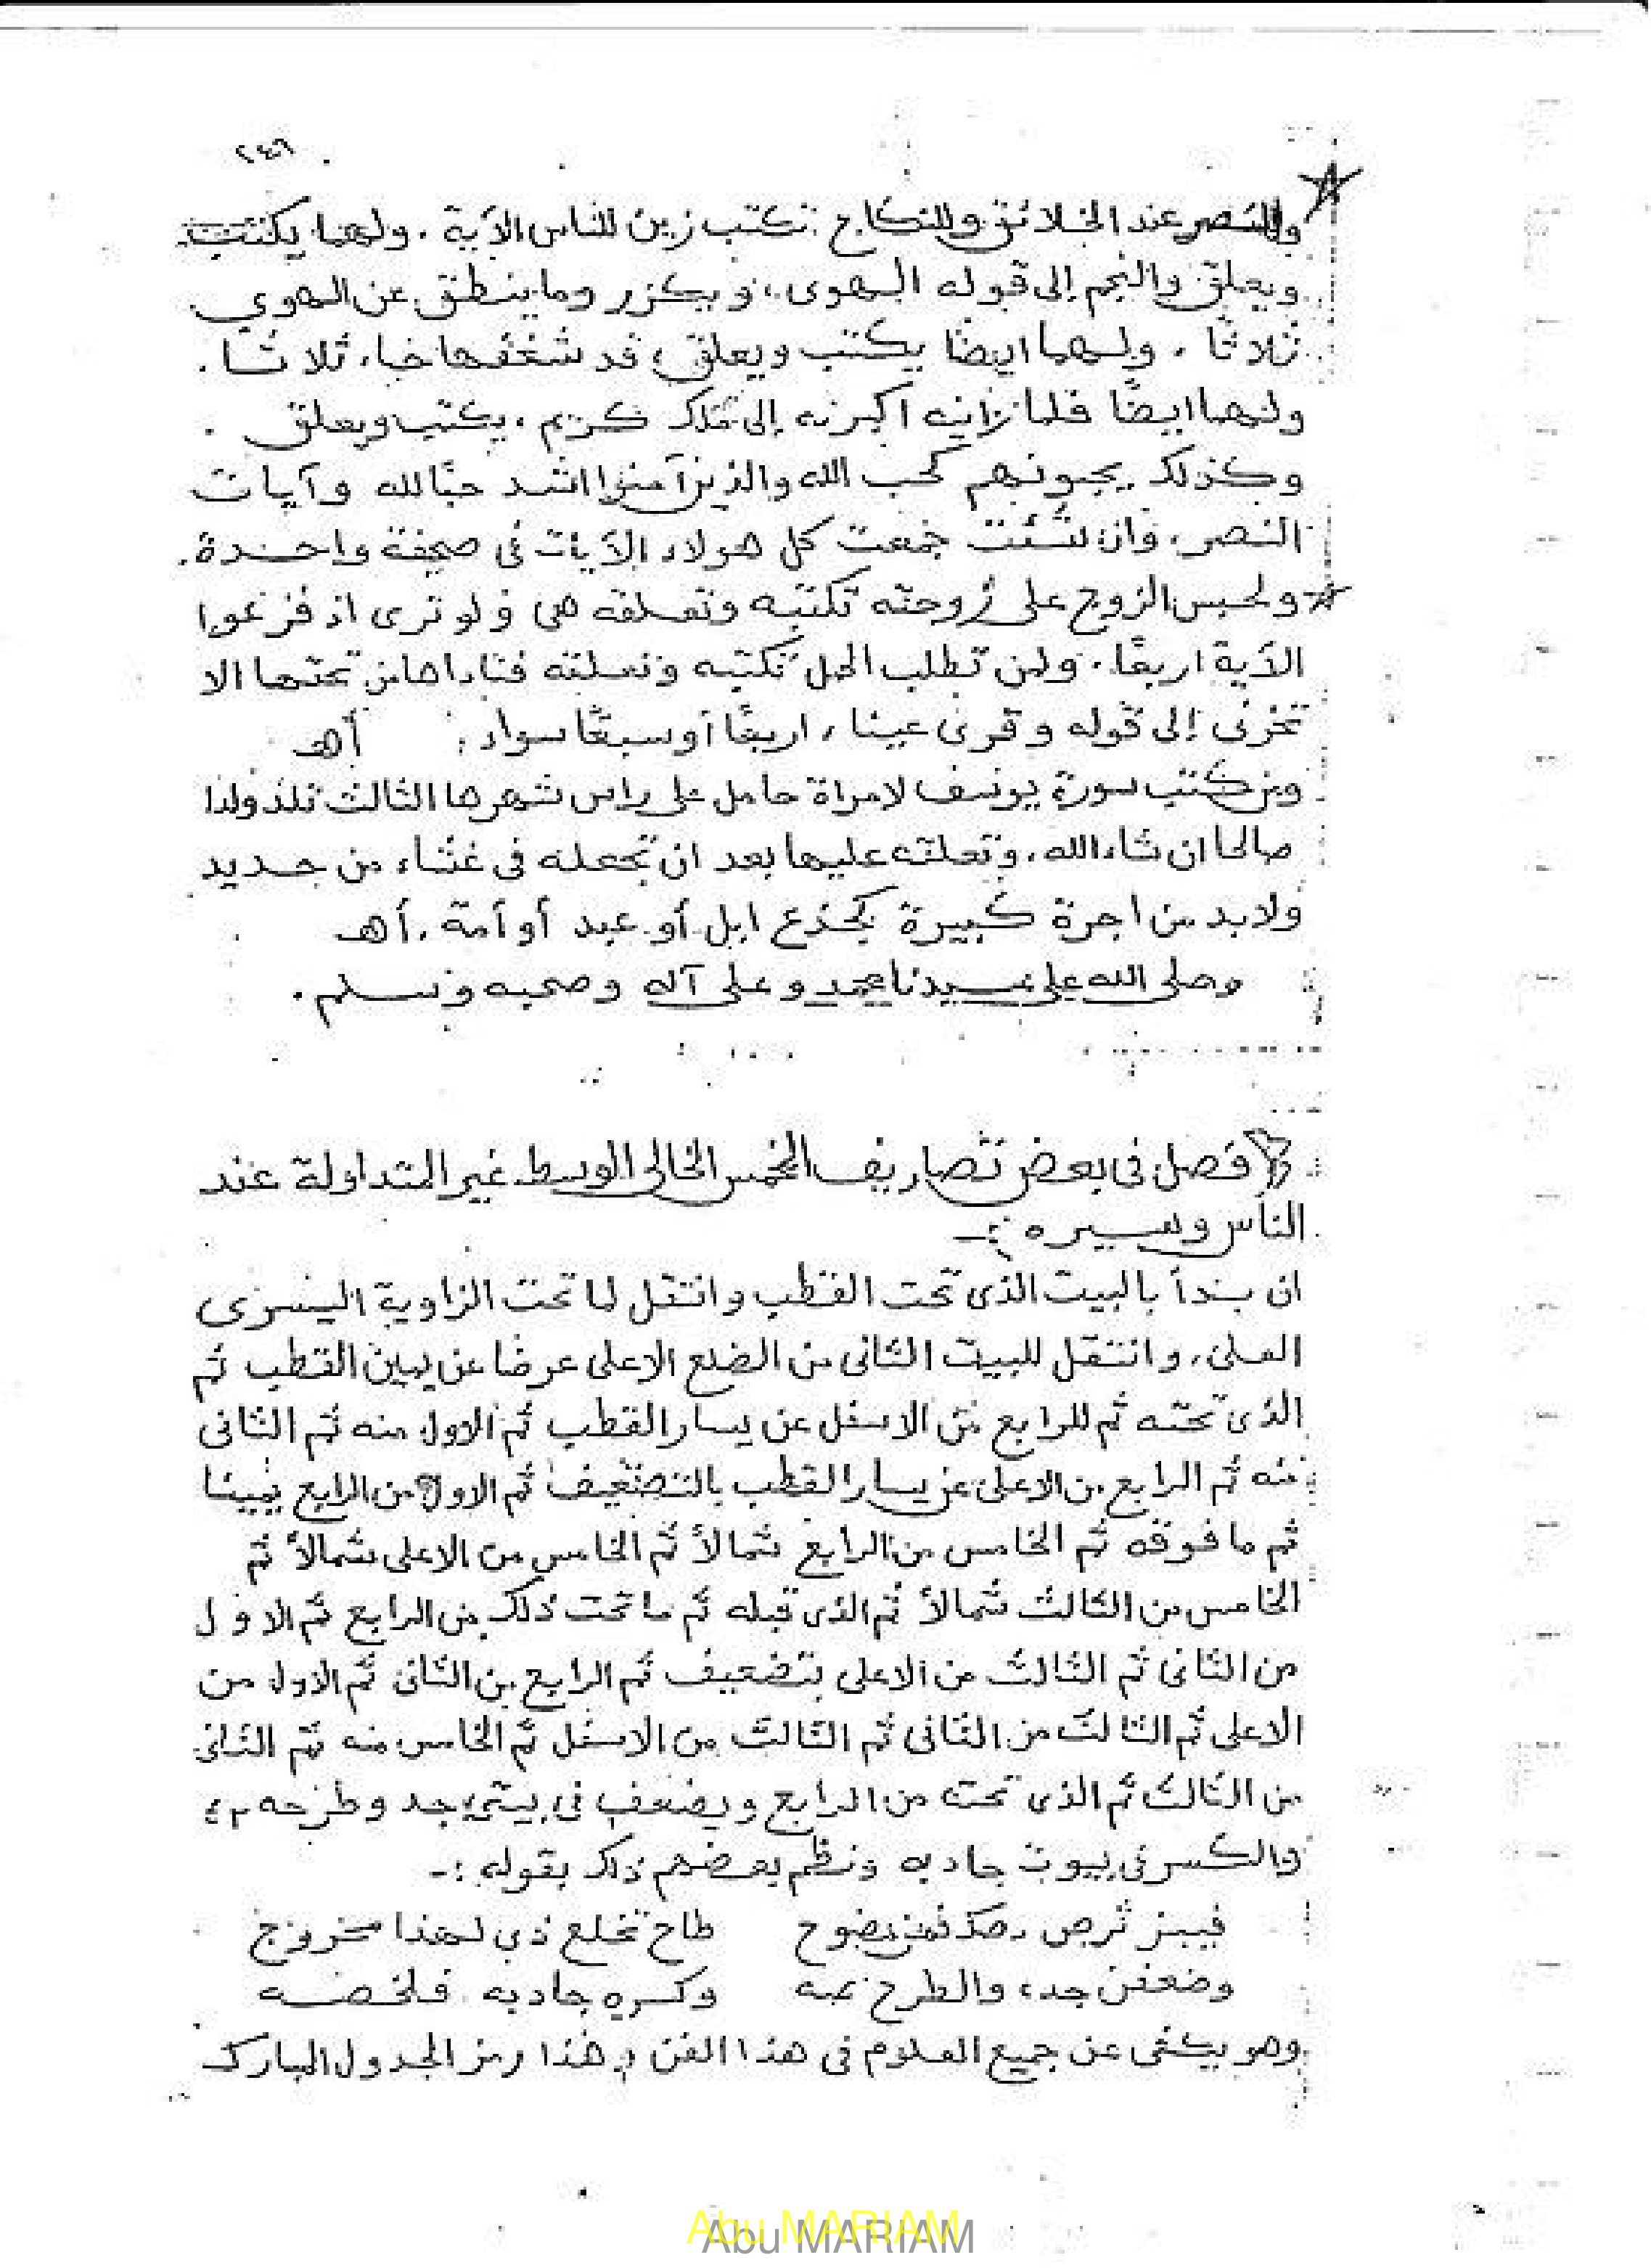 ٢٤٦
وللنصر عند الخلائق وللنكاح تكتب زين للناس الآية . ولهما يكتب
ويعلق والنجم إلى قوله الهوى ، ويكرر وما ينطق عن الهوي
ثلاثا . ولهما ايضًا يكتب ويعلق قد شغفها حبا ، ثلاثا .
ولهما ايضًا فلما راينه اكبرنه إلى ملك كريم ، يكتب ويعلق .
وكذلك يحبونهم كحب الله والذين آمنوا اشد حبًا لله وآيات
النصر ، وان شئت جمعت كل هولاء الآيات فى صحيفة واحدة .
ولحبس الزوج على زوجته تكتبه وتعلقه هى ولو ترى اذ فزعوا
الآية اربعًا . ولمن تطلب الحمل تكتبه وتعلقه فناداها من تحتها الا
تحزنى إلى قوله وقرى عينا ، اربعًا أو سبعًا سواء : أهـ
ومن كتب سورة يوسف لامراة حامل على راس شهرها الثالث تلد ولدا
صالحا ان شاء الله ، وتعلقه عليها بعد ان تجعله فى غشاء من جديد
ولابد من اجرة كبيرة كجذع ابل أو عبد أو أمة . أهـ
وصلى الله على سيدنا محمد وعلى آله وصحبه وسلم .
فصل فى بعض تصاريف المخمس الخالى الوسط غير المتداولة عند
الناس وسيره :-
ان بدأ بالبيت الذى تحت القطب وانتقل لما تحت الزاوية اليسرى
العلى ، وانتقل للبيت الثانى من الضلع الاعلى عرضا عن يمين القطب ثم
الذى تحته ثم للرابع من الاسفل عن يسار القطب ثم الاول منه ثم الثانى
منه ثم الرابع من الاعلى عن يسار القطب بالتضعيف ثم الاول من الرابع يمينا
ثم ما فوقه ثم الخامس من الرابع شمالاً ثم الخامس من الاعلى شمالاً ثم
الخامس من الثالث شمالاً ثم الذى قبله ثم ما تحت ذلك من الرابع ثم الاول
من الثانى ثم الثالث من الاعلى بتضعيف ثم الرابع من الثانى ثم الاول من
الاعلى ثم الثالث من الثانى ثم الثالث من الاسفل ثم الخامس منه ثم الثانى
من الثالث ثم الذى تحته من الرابع ويضعف فى بيتي جد وطرحه
والكسر فى بيوت جاد به ونظم بعضهم ذلك بقوله :-
طاح تخلع ذى لهذا مخروج
وضعفن جد والطرح وكسره جاد به
وهو يكفى عن جميع العلوم فى هذا الفن وهذا رمز الجدول المبارك
Abu MARIAM
Abu MARIAM